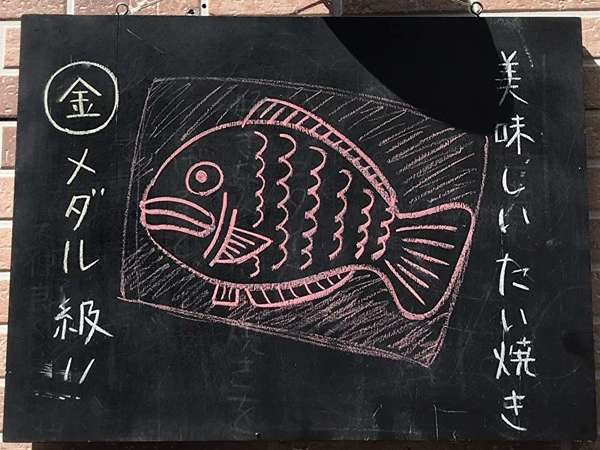 美味しいたい焼き
㊎メダル級!!